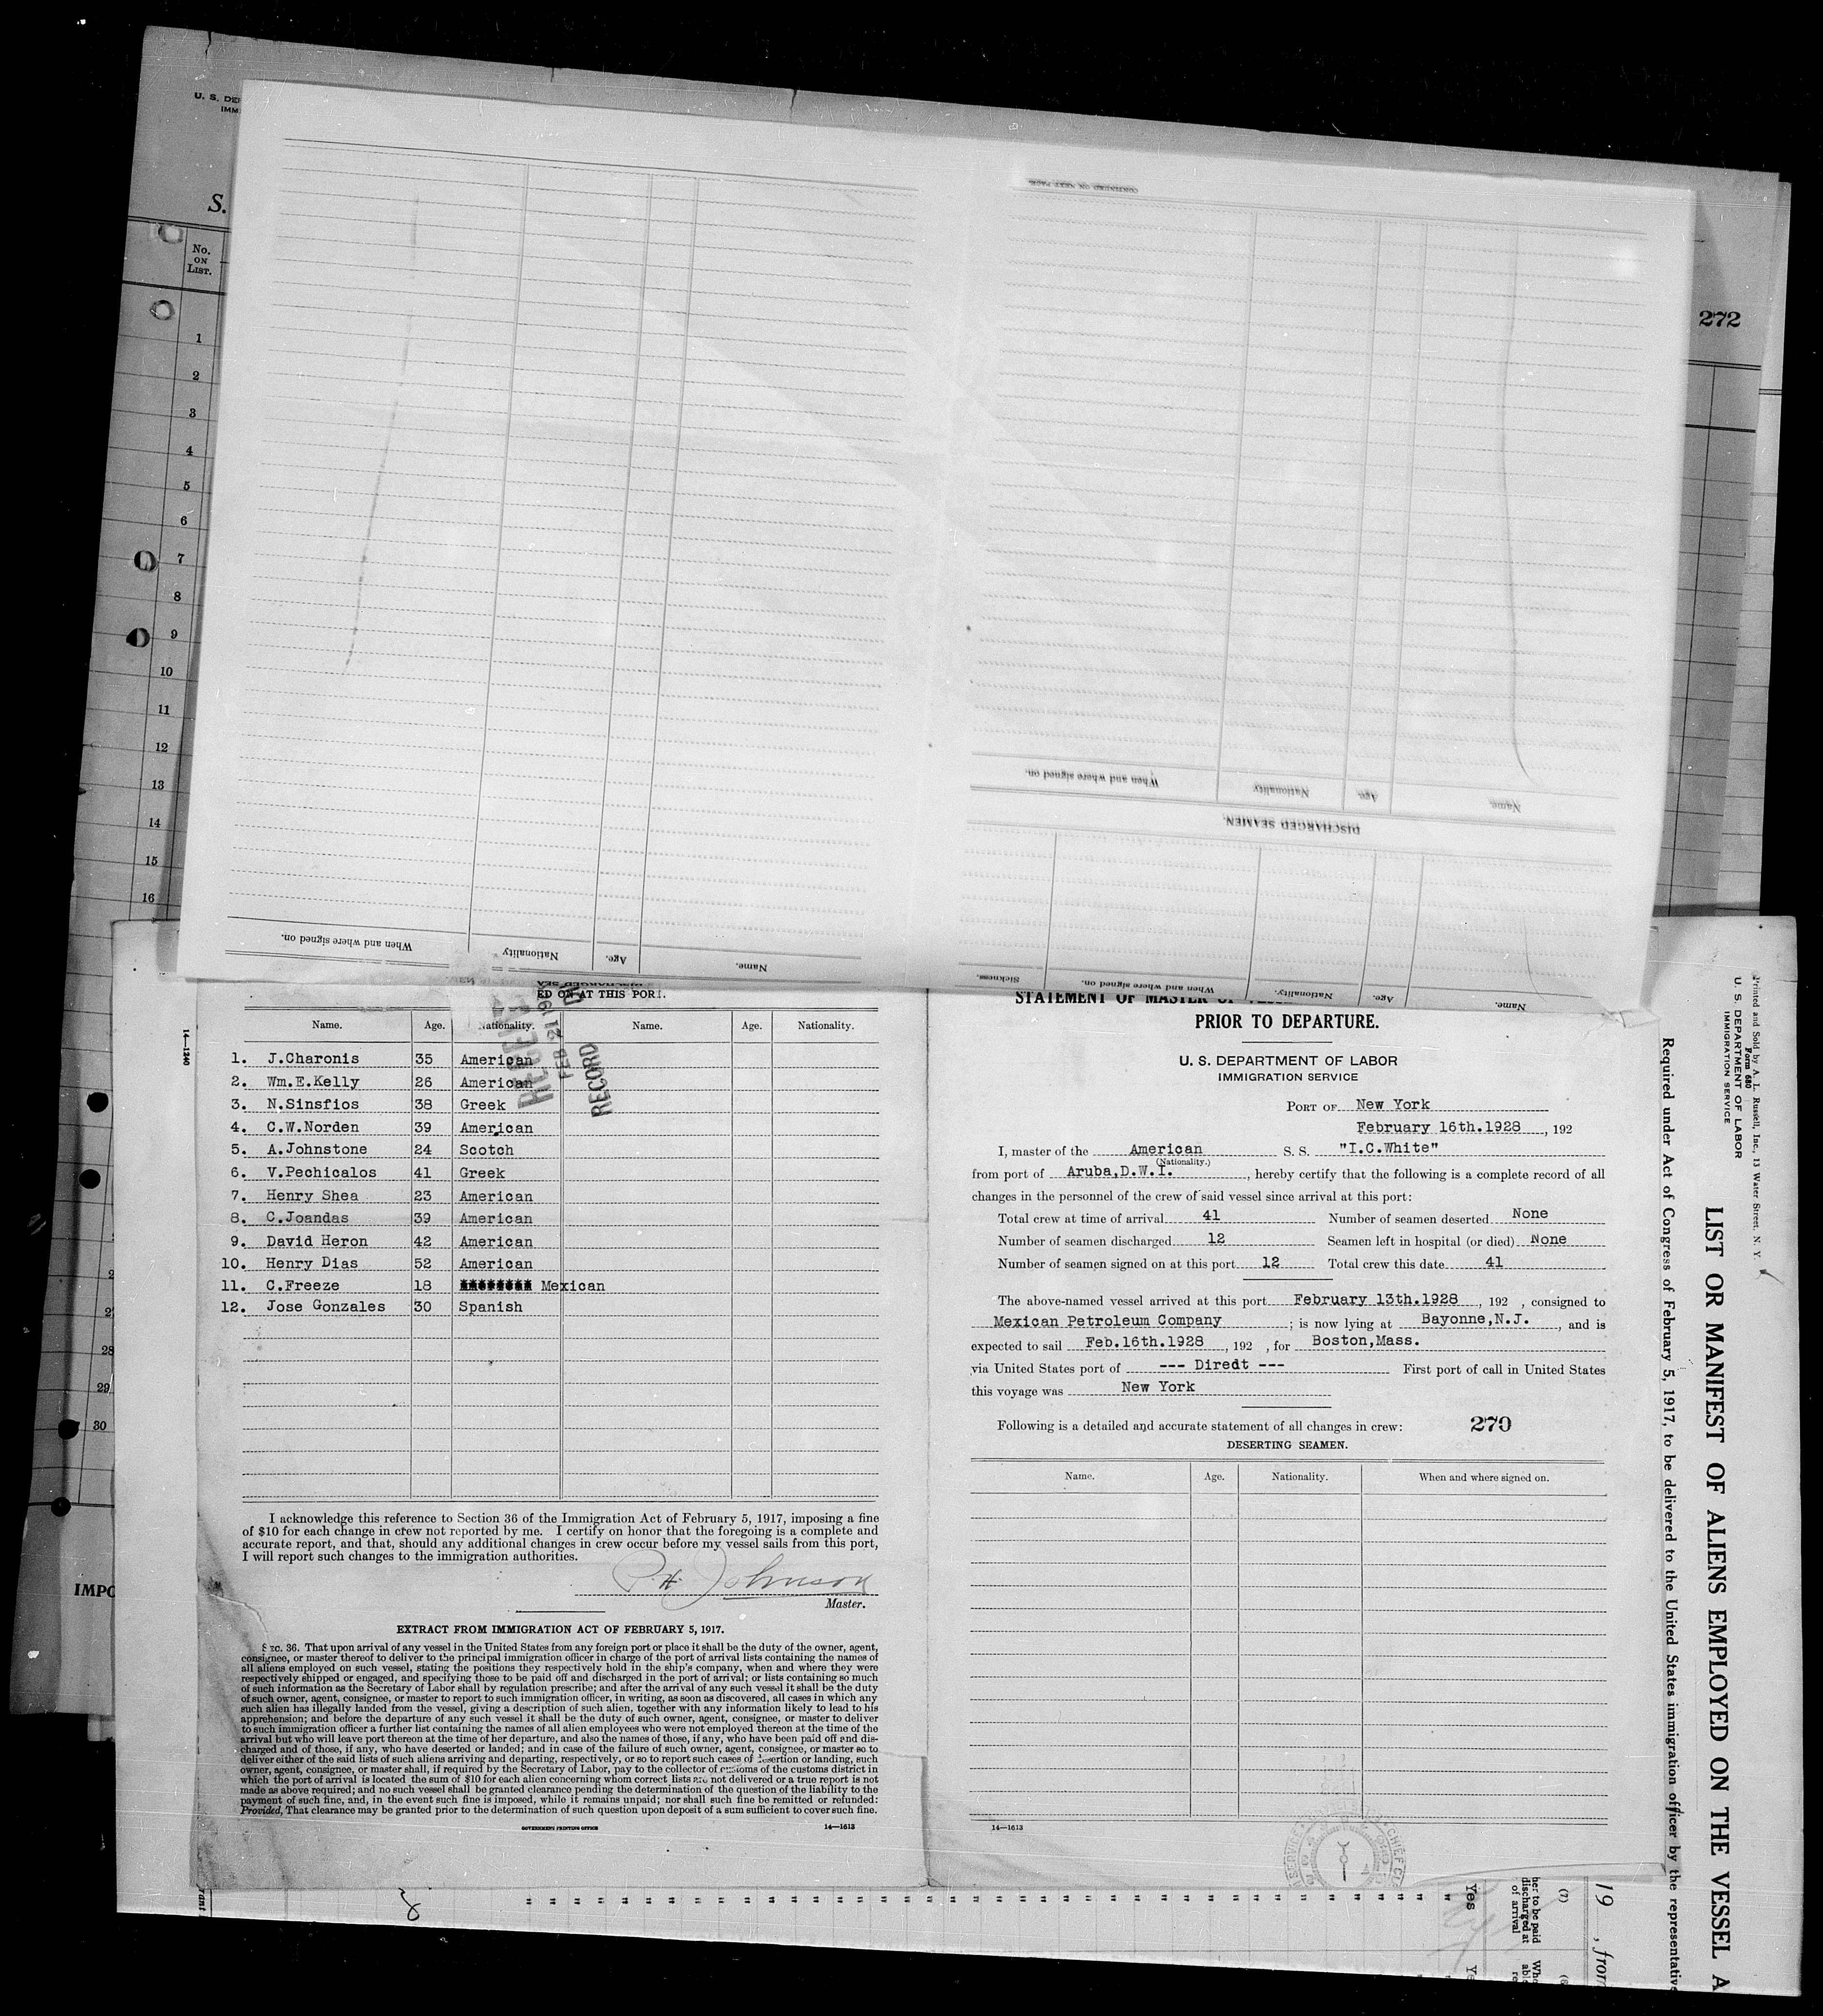 U. S. DE
IMM
S.
No.
ON
LIST.
1
2
3
4
5
6
7
8
9
10
11
12
13
14
15
16
28
29
30
IMPO
272
CONTINUED ON NEXT PAGE.
When and where signed on.
Nationality
Age.
Name.
DISCHARGED SEAMEN.
When and where signed on.
Nationality
Age.
Name.
Sickness.
When and where signed on.
Nationality.
Age.
Name.
14—1240
ED ON AT THIS PORT.
RECEIVED
FEB 21 19
RECORD
Name. Age. Nationality. Name. Age. Nationality.
1. J.Charonis 35 American
2. Wm.E.Kelly 26 American
3. N.Sinsfios 38 Greek
4. C.W.Norden 39 American
5. A.Johnstone 24 Scotch
6. V.Pechicalos 41 Greek
7. Henry Shea 23 American
8. C.Joandas 39 American
9. David Heron 42 American
10. Henry Dias 52 American
11. C.Freeze 18 Mexican
12. Jose Gonzales 30 Spanish
I acknowledge this reference to Section 36 of the Immigration Act of February 5, 1917, imposing a fine
of $10 for each change in crew not reported by me. I certify on honor that the foregoing is a complete and
accurate report, and that, should any additional changes in crew occur before my vessel sails from this port,
I will report such changes to the immigration authorities.
P.H. Johnson
Master.
EXTRACT FROM IMMIGRATION ACT OF FEBRUARY 5, 1917.
Sec. 36. That upon arrival of any vessel in the United States from any foreign port or place it shall be the duty of the owner, agent,
consignee, or master thereof to deliver to the principal immigration officer in charge of the port of arrival lists containing the names of
all aliens employed on such vessel, stating the positions they respectively hold in the ship's company, when and where they were
respectively shipped or engaged, and specifying those to be paid off and discharged in the port of arrival; or lists containing so much
of such information as the Secretary of Labor shall by regulation prescribe; and after the arrival of any such vessel it shall be the duty
of such owner, agent, consignee, or master to report to such immigration officer, in writing, as soon as discovered, all cases in which any
such alien has illegally landed from the vessel, giving a description of such alien, together with any information likely to lead to his
apprehension; and before the departure of any such vessel it shall be the duty of such owner, agent, consignee, or master to deliver
to such immigration officer a further list containing the names of all alien employees who were not employed thereon at the time of the
arrival but who will leave port thereon at the time of her departure, and also the names of those, if any, who have been paid off and dis-
charged and of those, if any, who have deserted or landed; and in case of the failure of such owner, agent, consignee, or master so to
deliver either of the said lists of such aliens arriving and departing, respectively, or so to report such cases of desertion or landing, such
owner, agent, consignee, or master shall, if required by the Secretary of Labor, pay to the collector of customs of the customs district in
which the port of arrival is located the sum of $10 for each alien concerning whom correct lists are not delivered or a true report is not
made as above required; and no such vessel shall be granted clearance pending the determination of the question of the liability to the
payment of such fine, and, in the event such fine is imposed, while it remains unpaid; nor shall such fine be remitted or refunded:
Provided, That clearance may be granted prior to the determination of such question upon deposit of a sum sufficient to cover such fine.
GOVERNMENT PRINTING OFFICE 14—1613
STATEMENT OF MASTER OF
PRIOR TO DEPARTURE.
U. S. DEPARTMENT OF LABOR
IMMIGRATION SERVICE
PORT OF New York
February 16th.1928 , 192
I, master of the American S. S. "I.C.White"
(Nationality.)
from port of Aruba,D.W.I. , hereby certify that the following is a complete record of all
changes in the personnel of the crew of said vessel since arrival at this port:
Total crew at time of arrival 41 Number of seamen deserted None
Number of seamen discharged 12 Seamen left in hospital (or died) None
Number of seamen signed on at this port 12 Total crew this date 41
The above-named vessel arrived at this port February 13th.1928 , 192 , consigned to
Mexican Petroleum Company ; is now lying at Bayonne,N.J. , and is
expected to sail Feb.16th.1928 , 192 , for Boston,Mass.
via United States port of --- Diredt --- First port of call in United States
this voyage was New York
Following is a detailed and accurate statement of all changes in crew: 270
DESERTING SEAMEN.
Name. Age. Nationality. When and where signed on.
14—1613
Printed and Sold by A. L. Russell, Inc., 13 Water Street, N. Y.
Form 680
U. S. DEPARTMENT OF LABOR
IMMIGRATION SERVICE
LIST OR MANIFEST OF ALIENS EMPLOYED ON THE VESSEL A
Required under Act of Congress of February 5, 1917, to be delivered to the United States immigration officer by the representative
19 , from
(7)
her to be paid
discharged at
of arrival
Yes